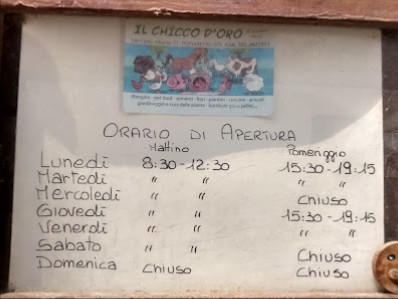 IL CHICCO D'ORO
ORARIO DI APERTURA
Mattino Pomeriggio
Lunedì 8:30-12:30 15:30-19:15
Martedì " " " "
Mercoledì " " Chiuso
Giovedì " " 15:30-19:15
Venerdì " " " "
Sabato " " Chiuso
Domenica Chiuso Chiuso